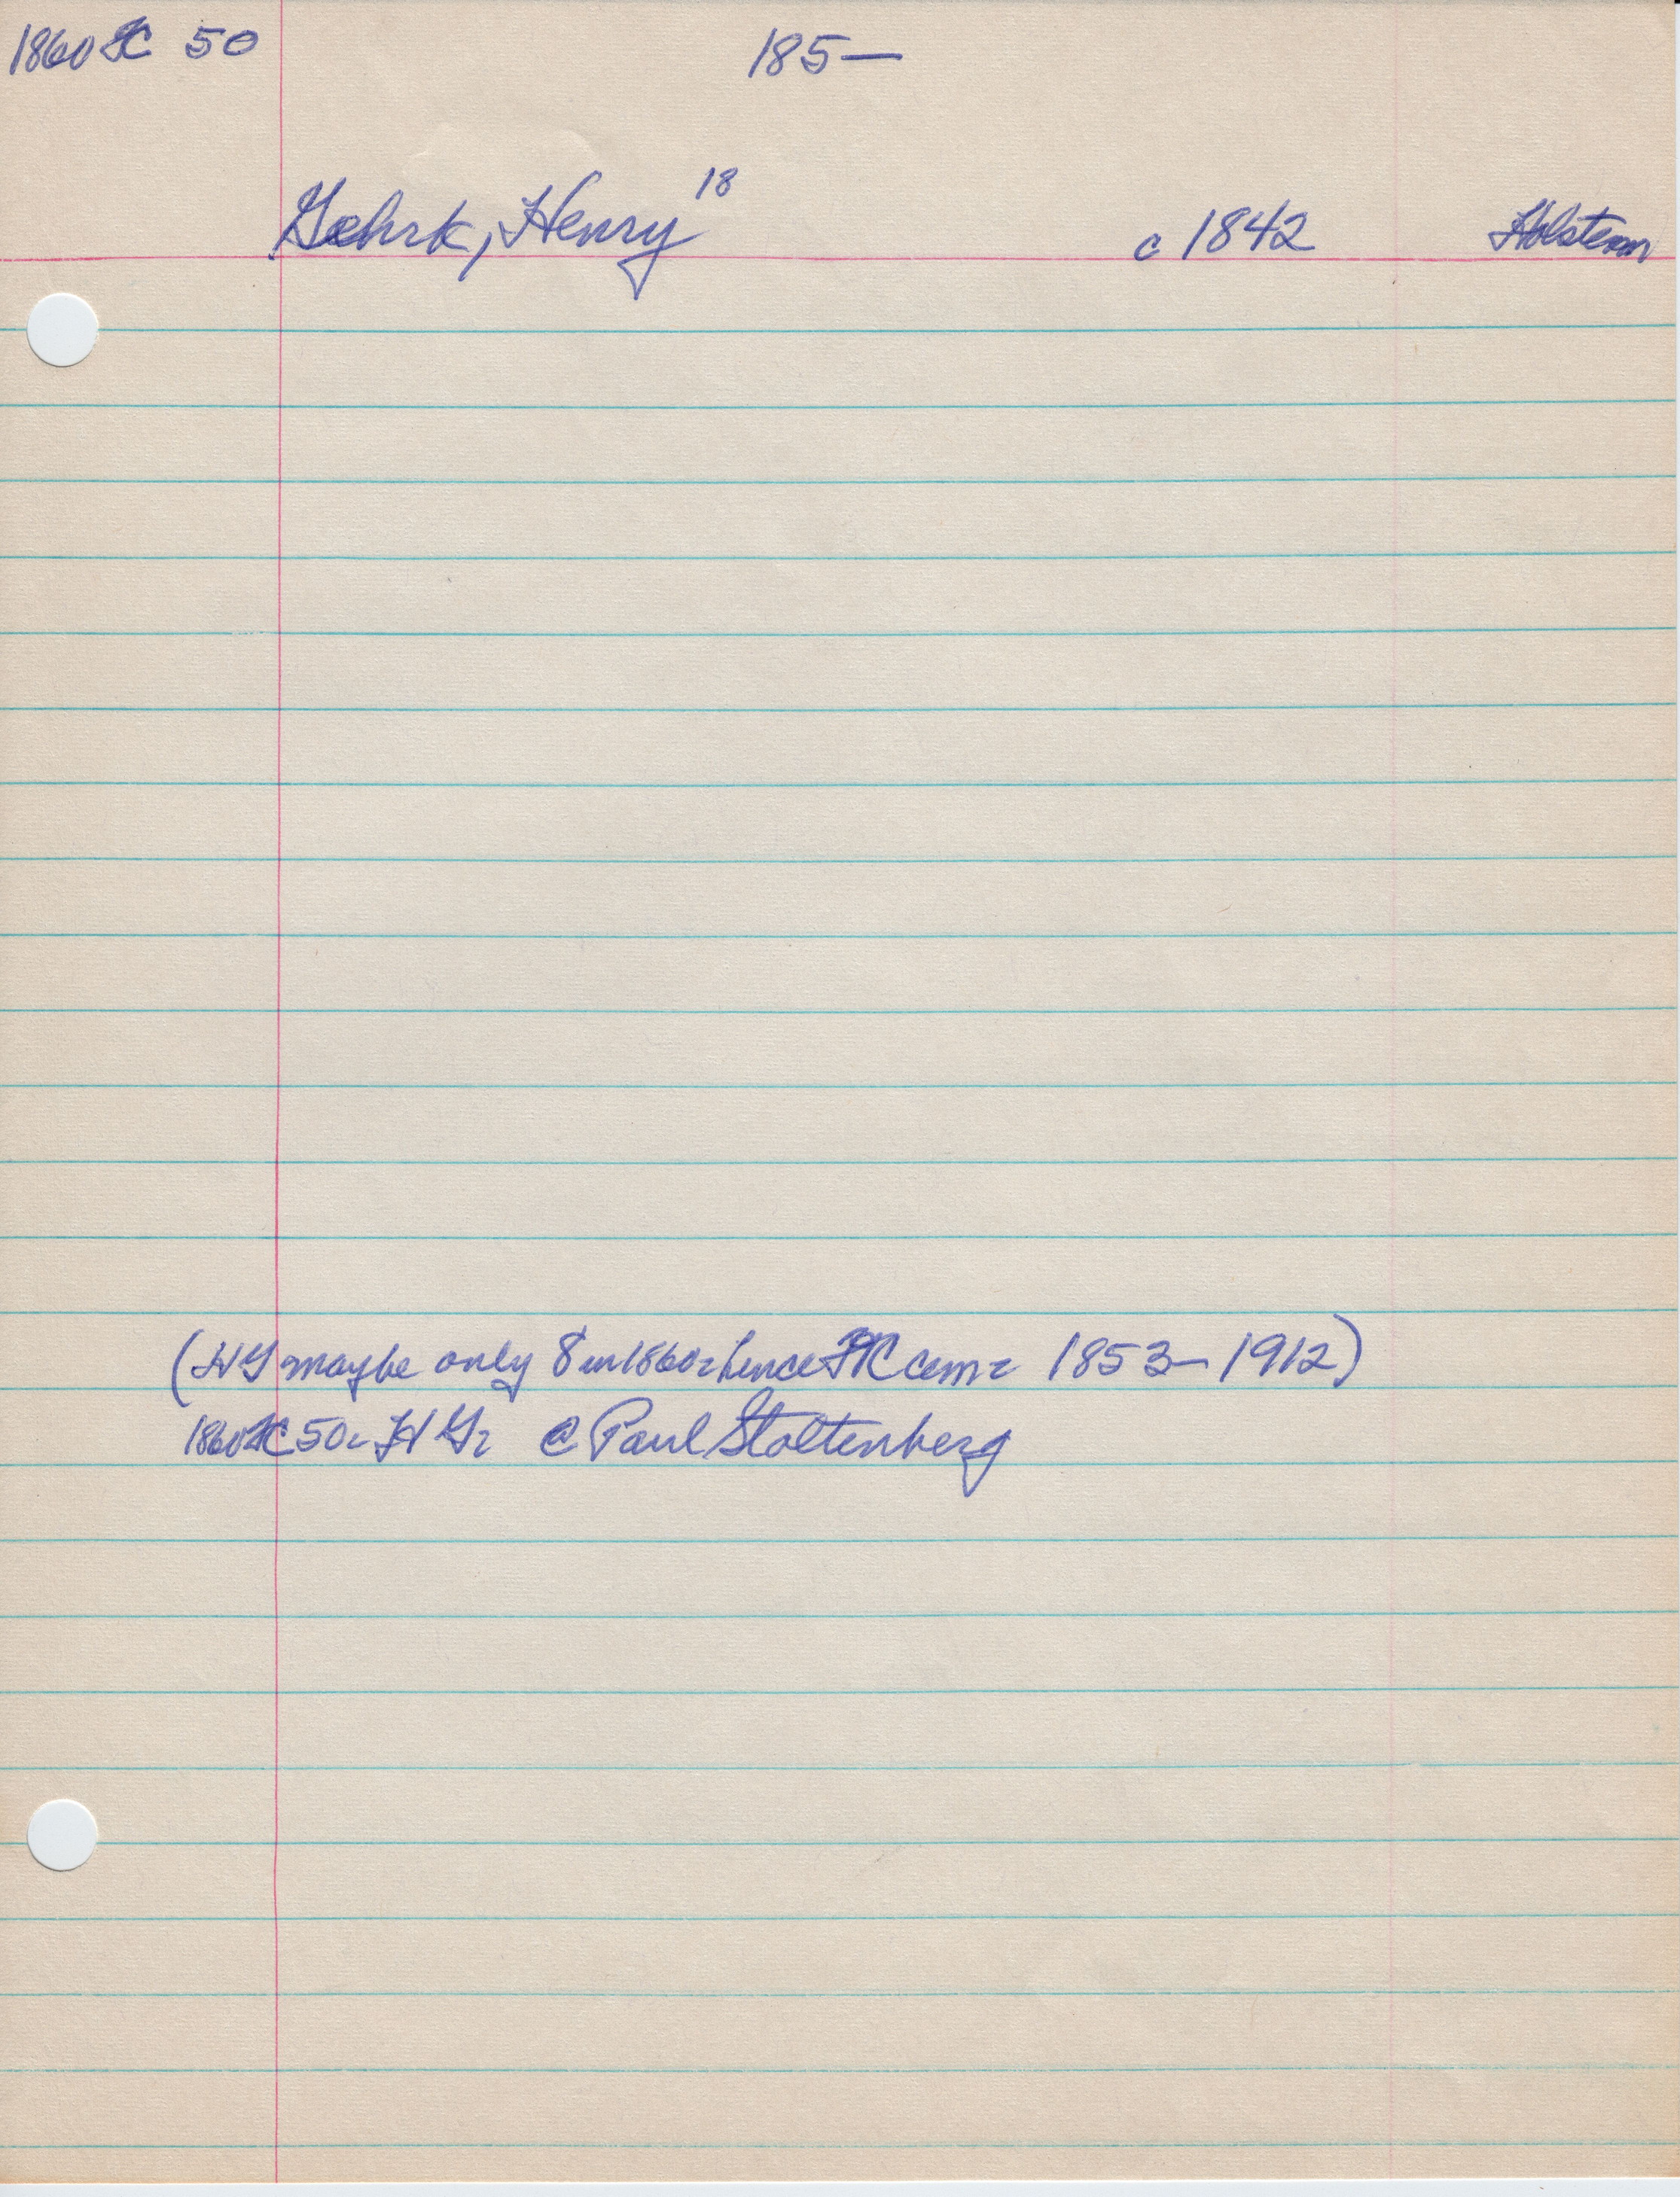 1860 SC 50 185—
Gehrk, Henry 18 c 1842 Holstein
(HG maybe only 8 in 1860: hence cem: 1853–1912)
1860 SC 50: HG: @ Paul Stoltenberg